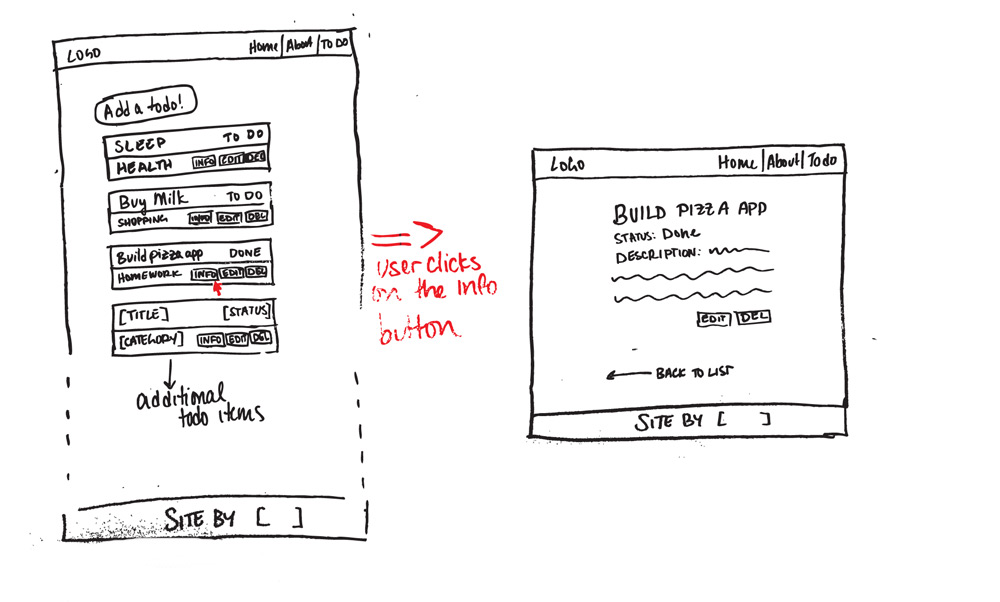 LOGO Home|About|TO DO
Add a todo!
SLEEP TO DO
HEALTH INFO EDIT DEL
Buy Milk TO DO
SHOPPING INFO EDIT DEL
Build pizza app DONE
HOMEWORK INFO EDIT DEL
[TITLE] [STATUS]
[CATEGORY] INFO EDIT DEL
additional
todo items
SITE BY [ ]
user clicks
on the info
button
LOGO Home|About|Todo
BUILD PIZZA APP
STATUS: Done
DESCRIPTION:
EDIT DEL
BACK TO LIST
SITE BY [ ]